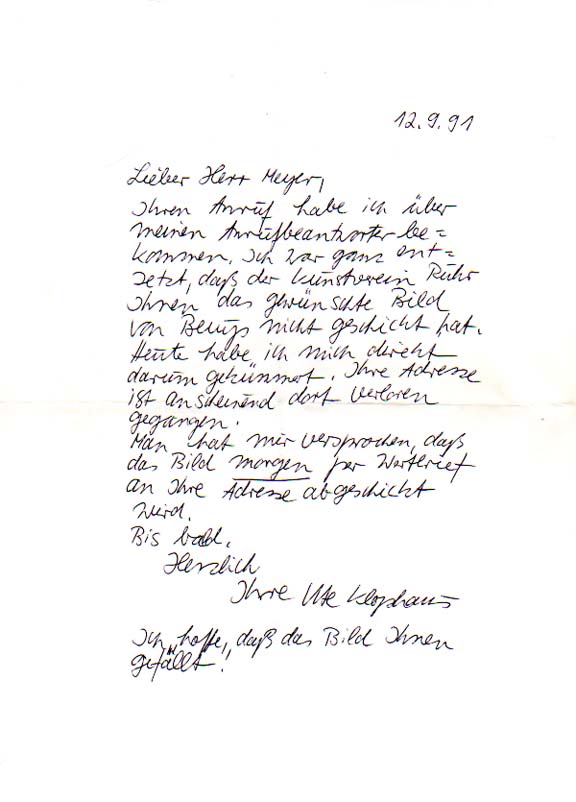 12.9.91
Lieber Herr Meyer,
Ihren Anruf habe ich über
meinen Anrufbeantworter be=
kommen. Ich war ganz ent=
setzt, daß der Kunstverein Ruhr
Ihnen das gewünschte Bild
von Beuys nicht geschickt hat.
Heute habe ich mich direkt
darum gekümmert. Ihre Adresse
ist anscheinend dort verloren
gegangen.
Man hat mir versprochen, daß
das Bild morgen per Wertbrief
an Ihre Adresse abgeschickt
wird.
Bis bald.
Herzlich
Ihre Ute Klophaus
Ich "hoffe", daß das Bild Ihnen
gefällt!